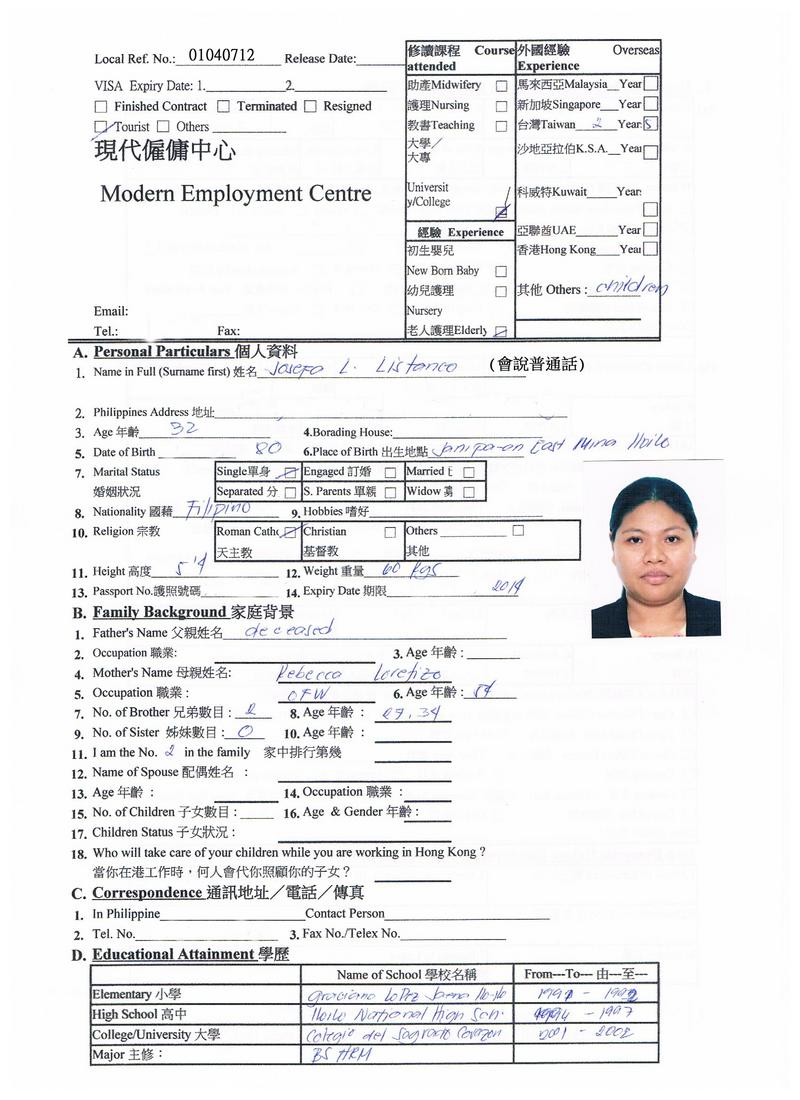 Local Ref. No.: 01040712 Release Date:
VISA Expiry Date: 1. 2.
Finished Contract Terminated Resigned
Tourist Others
現代僱傭中心
Modern Employment Centre
Email:
Tel.: Fax:
修讀課程 Course
attended
助產Midwifery
護理Nursing
教書Teaching
大學／
大專
Universit
y/College
經驗 Experience
初生嬰兒
New Born Baby
幼兒護理
Nursery
老人護理Elderly
外國經驗 Overseas
Experience
馬來西亞Malaysia Year
新加坡Singapore Year
台灣Taiwan 2 Years
沙地亞拉伯K.S.A. Year
科威特Kuwait Year
亞聯酋UAE Year
香港Hong Kong Year
其他 Others : children
A. Personal Particulars 個人資料
1. Name in Full (Surname first) 姓名 Josefa L. Listanco (會說普通話)
2. Philippines Address 地址
3. Age 年齡 32 4.Borading House:
5. Date of Birth 80 6.Place of Birth 出生地點 Janipa-an East Mina Iloilo
7. Marital Status Single單身 Engaged 訂婚 Married
婚姻狀況 Separated 分 S. Parents 單親 Widow
8. Nationality 國藉 Filipino 9. Hobbies 嗜好
10. Religion 宗教 Roman Catho Christian Others
天主教 基督教 其他
11. Height 高度 5'4 12. Weight 重量 60 kgs
13. Passport No.護照號碼 14. Expiry Date 期限 2014
B. Family Background 家庭背景
1. Father's Name 父親姓名 deceased
2. Occupation 職業: 3. Age 年齡 :
4. Mother's Name 母親姓名: Rebecca
5. Occupation 職業 : OFW 6. Age 年齡 : 54
7. No. of Brother 兄弟數目 : 2 8. Age 年齡 : 29, 34
9. No. of Sister 姊妹數目 : 0 10. Age 年齡 :
11. I am the No. 2 in the family 家中排行第幾
12. Name of Spouse 配偶姓名 :
13. Age 年齡 : 14. Occupation 職業 :
15. No. of Children 子女數目 : 16. Age & Gender 年齡 :
17. Children Status 子女狀況 :
18. Who will take care of your children while you are working in Hong Kong ?
當你在港工作時，何人會代你照顧你的子女？
C. Correspondence 通訊地址／電話／傳真
1. In Philippine Contact Person
2. Tel. No. 3. Fax No./Telex No.
D. Educational Attainment 學歷
Name of School 學校名稱 From---To--- 由---至---
Elementary 小學 Graciano Lopez Jaena Iloilo - 1992
High School 高中 Iloilo National High Sch. 1994 - 1997
College/University 大學 Colegio del Sagrado Corazon 2001 - 2002
Major 主修： BS HRM